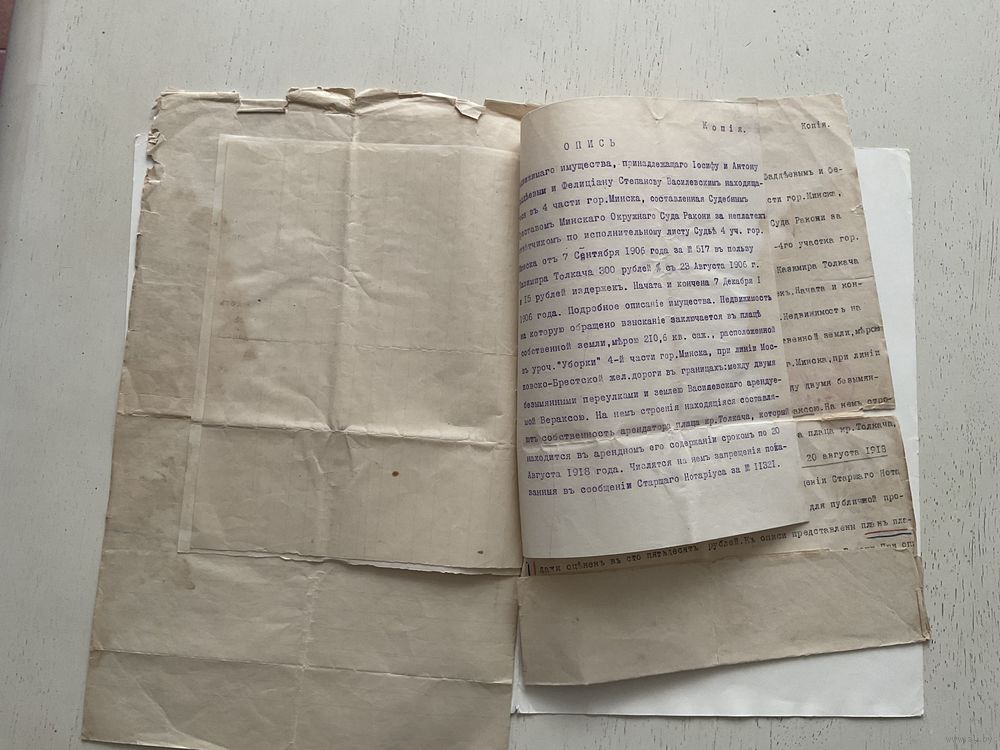 Копія.
ОПИСЬ
имущества, принадлежащаго Іосифу и Антону
и Фелиціану Степанову Василевским находяща-
въ 4 части гор.Минска, составленная Судебным
Минскаго Окружнаго Суда Ракони за неплатежъ
по исполнительному листу Судьѣ 4 уч. гор.
отъ 7 Сентября 1906 года за № 517 въ пользу
Толкача 300 рублей % съ 23 Августа 1906 г.
и 15 рублей издержек. Начата и кончена 7 Декабря 1
1906 года. Подробное описаніе имущества. Недвижимость
на которую обращено взысканіе заключается въ плацѣ
собственной земли,мѣрою 210,6 кв. саж., расположенной
въ уроч."Уборки" 4-й части гор.Минска, при линіи Мос-
ковско-Брестской жел.дороги въ границахъ:между двумя
безымянными переулками и землею Василевскаго арендуе-
мой Вераксою. На нем строенія находящіяся составля-
ютъ собственность арендатора плаца кр.Толкача, который
находится въ арендном его содержаніи сроком по 20
Августа 1918 года. Числятся на нем запрещенія пока-
занныя въ сообщеніи Старшаго Нотаріуса за № 11321.
Копія.
и Фе-
сти гор.Минска,
Суда Ракони за
-4го участка гор.
Казимира Толкача
.Начата и кон-
.Недвижимость на
земли,мѣрою
.Минска,при линіи
двумя безымян-
.На немъ стро-
плаца кр.Толкача,
20 августа 1918
Старшаго Нота
для публичной про-
оцѣненъ въ сто пятьдесятъ рублей.Къ описи представленъ планъ пла-